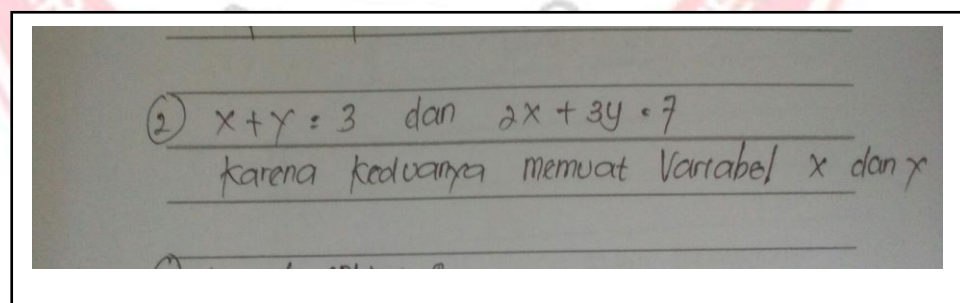 ② x + y = 3 dan 2x + 3y = 7
karena keduanya memuat Variabel x dan y